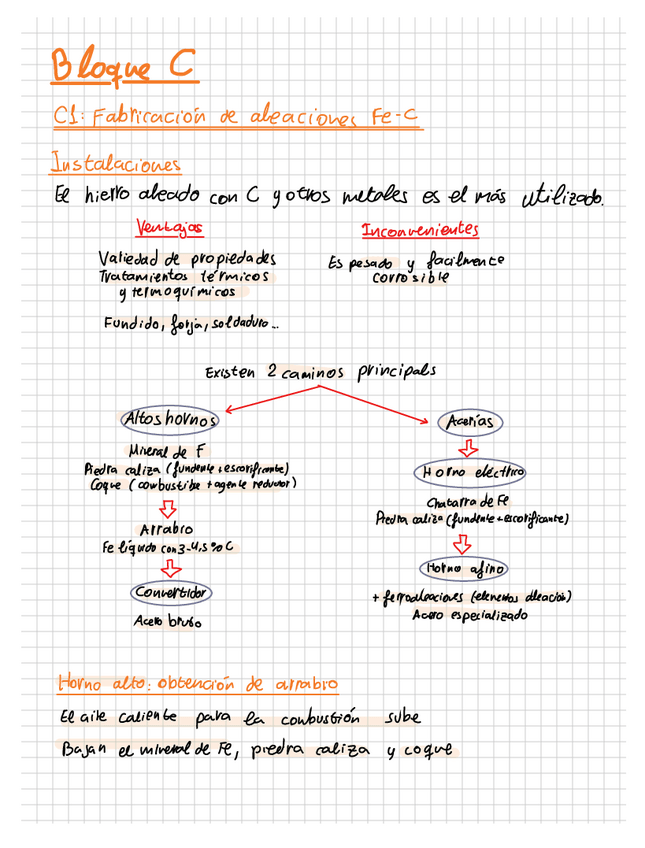 Bloque C
C1: Fabricación de aleaciones Fe-C
Instalaciones
El hierro aleado con C y otros metales es el más utilizado.
Ventajas
Variedad de propiedades
Tratamientos térmicos
y termoquímicos
Fundido, forja, soldaduro...
Inconvenientes
Es pesado y facilmente
corrosible
Existen 2 caminos principals
Altos hornos
Mineral de F
Piedra caliza (fundente + escorificante)
Coque (combustible + agente reductor)
Arrabro
Fe líquido con 3-4,5 % C
Convertidor
Acero bruto
Acerías
Horno eléctrico
Chatarra de Fe
Piedra caliza (fundente + escorificante)
Horno afino
+ ferroaleaciones (elementos aleación)
Acero especializado
Horno alto: obtención de arrabro
El aire caliente para la combustión sube
Bajan el mineral de Fe, piedra caliza y coque